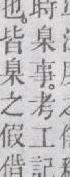 時臬事。考工記
也。皆臬之假借